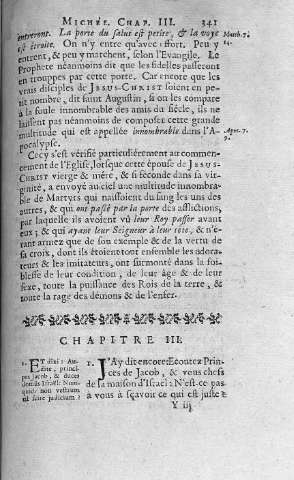 MICHÉE. CHAP. III. 341
entreront. La porte du salut est petite, & la voye
est étroite. On n'y entre qu'avec effort. Peu y
entrent, & peu y marchent, selon l'Evangile. Le
Prophete néanmoins dit que les fidelles passeront
en trouppes par cette porte. Car encore que les
vrais disciples de JESUS-CHRIST soient en pe-
tit nombre, dit saint Augustin, si on les compare
à la foule innombrable des amis du siécle, ils ne
laissent pas néanmoins de composer cette grande
multitude qui est appellée innombrable dans l'A-
pocalypse.
Matth. 7.
14.
Apoc. 7.
9.
Cecy s'est vérifié particulièrement au commen-
cement de l'Eglise, lorsque cette épouse de JESUS-
CHRIST vierge & mére, & si féconde dans sa vir-
ginité, a envoyé au ciel une multitude innombra-
ble de Martyrs qui naissoient du sang les uns des
autres, & qui ont passé par la porte des afflictions,
par laquelle ils avoient vû leur Roy passer avant
eux; & qui ayant leur Seigneur à leur teste, & n'é-
tant armez que de son exemple & de la vertu de
sa croix, dont ils étoient tout ensemble les adora-
teurs & les imitateurs, ont surmonté dans la foi-
blesse de leur condition, de leur âge & de leur
sexe, toute la puissance des Rois de la terre, &
toute la rage des démons & de l'enfer.
CHAPITRE III.
1. ET dixi: Au-
dite, princi-
pes Jacob, & duces
domûs Israël: Num-
quid non vestrum
est scire judicium?
1. J'Ay dit encore: Ecoutez Prin-
ces de Jacob, & vous chefs
de la maison d'Israël: N'est-ce pas
à vous à sçavoir ce qui est juste?
Y iij